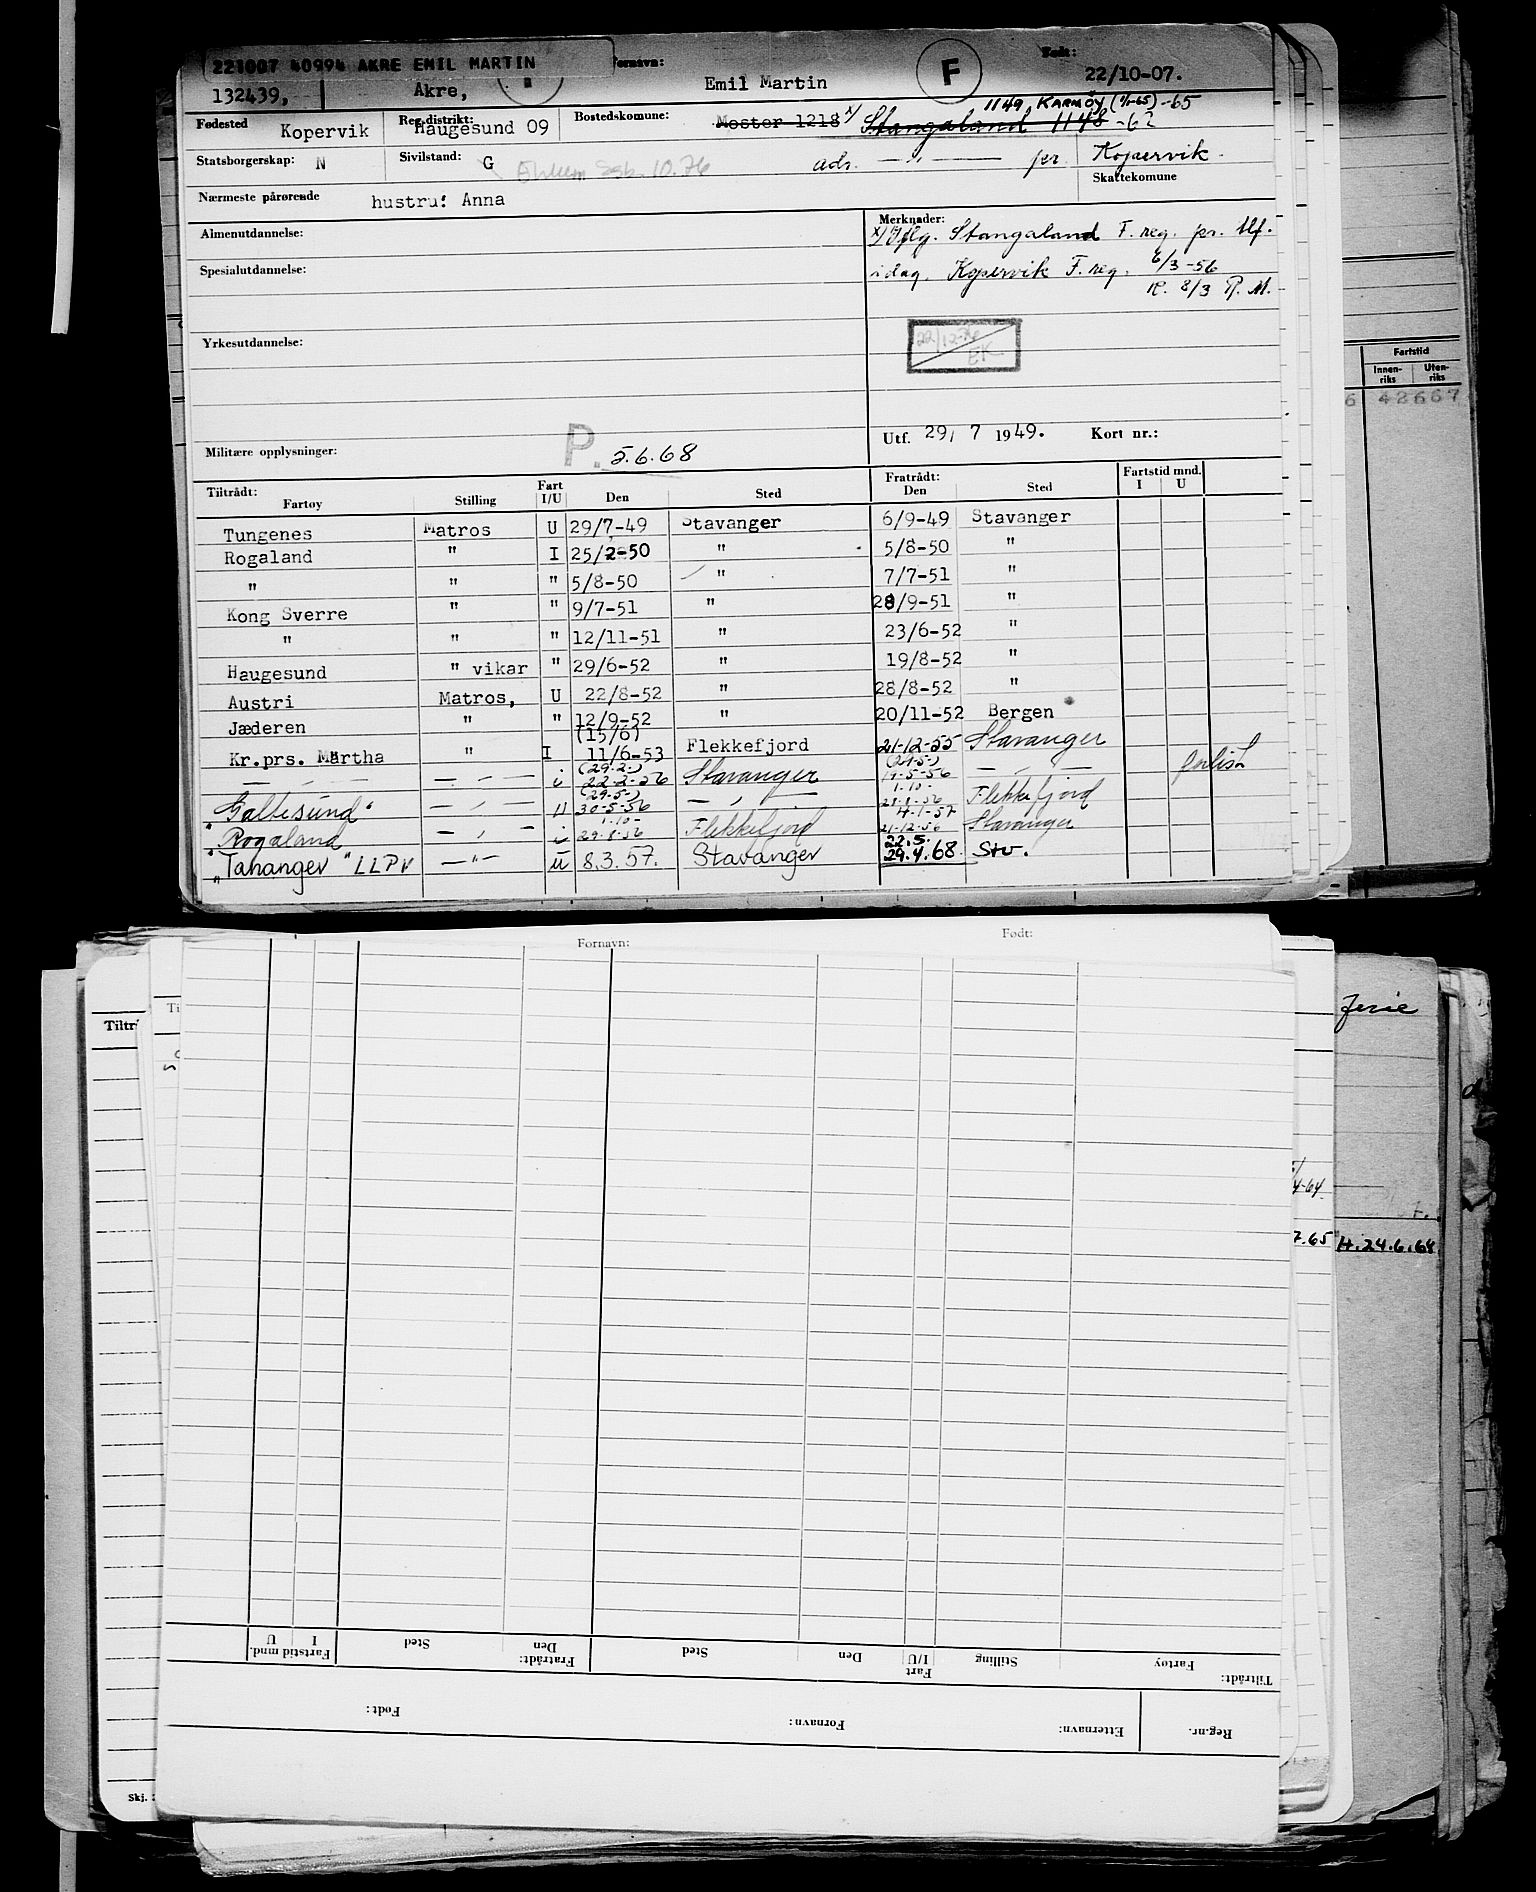 221007 40994 AKRE EMIL MARTIN
132439, Akre, Fornavn: Emil Martin F Født: 22/10-07.
1149 KARMØY (1/1-65) -65
Fødested Kopervik Reg.distrikt: Haugesund 09 Bostedskomune: Moster 1218 x) Stangaland 1148 -62
Statsborgerskap: N Sivilstand: G 10.76 adr. — " — pr. Kopervik.
Skattekomune
Nærmeste pårørende hustru: Anna
Almenutdannelse: Merknader:
x) Iflg. Stangaland F. reg. pr. tlf.
Spesialutdannelse: idag. Kopervik F. reg. 6/3-56
R. 8/3 P. M.
Yrkesutdannelse: 22/12-76 EK
Militære opplysninger: P. 5.6.68 Utf. 29/ 7 1949. Kort nr.:
Tiltrådt: Fartøy Stilling Fart I/U Den Sted Fratrådt: Den Sted Fartstid mnd. I U
Tungenes Matros U 29/7-49 Stavanger 6/9-49 Stavanger
Rogaland " I 25/2-50 " 5/8-50 "
" " " 5/8-50 " 7/7-51 "
Kong Sverre " " 9/7-51 " 28/9-51 "
" " " 12/11-51 " 23/6-52 "
Haugesund " vikar " 29/6-52 " 19/8-52 "
Austri Matros, U 22/8-52 " 28/8-52 "
Jæderen " " 12/9-52 " 20/11-52 Bergen
(15/6)
Kr.prs. Märtha " I 11/6-53 Flekkefjord 21-12-55 Stavanger
(29.2.) (24.5.)
— " — — " — i 22-2-56 Stavanger 14-5-56 — " — forlist
(29.5.) 1.10-
"Galtesund" — " — U 30-5-56 — " — 29-8-56 Flekkefjord
1.10- 4-1-57
"Rogaland — " — i 29.8.56 Flekkefjord 21-12-56 Stavanger
22.5.
"Tananger" LLPV — " — u 8.3.57. Stavanger 29.4.68 Stv.
Fartstid
Innen-riks Uten-riks
6 42667
Fornavn: Født:
Tiltr
Ti
Ferie
4-64
7.65 H. 24.6.68
Tiltrådt: Fartøy Stilling Fart I/U Den Sted Fratrådt: Den Sted Fartstid mnd. I U
Reg.nr. Etternavn: Fornavn: Født:
Skj.